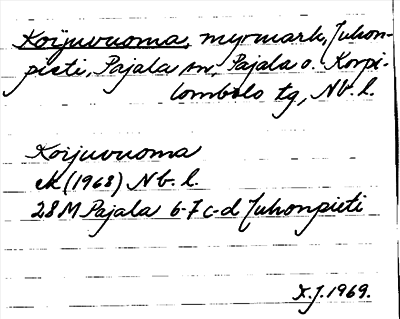 Koijuvuoma, myrmark, Juhon-
pieti, Pajala sn, Pajala o. Korpi-
lombolo tg, Nb. l.
Koijuvuoma
ek (1968) Nb. l.
28M Pajala 6-7 c-d Juhonpieti
X.J. 1969.